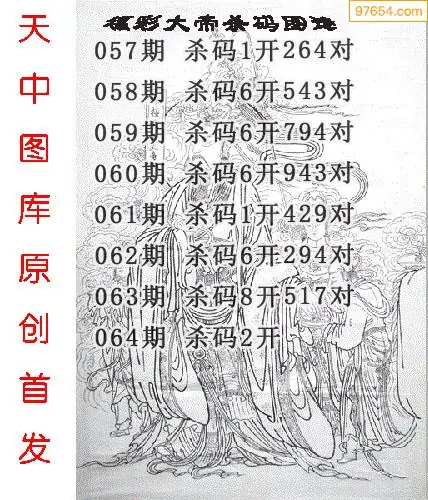 97654.com
福彩大帝杀码图迷
057期 杀码1开264对
058期 杀码6开543对
059期 杀码6开794对
060期 杀码6开943对
061期 杀码1开429对
062期 杀码6开294对
063期 杀码8开517对
064期 杀码2开
天中图库原创首发